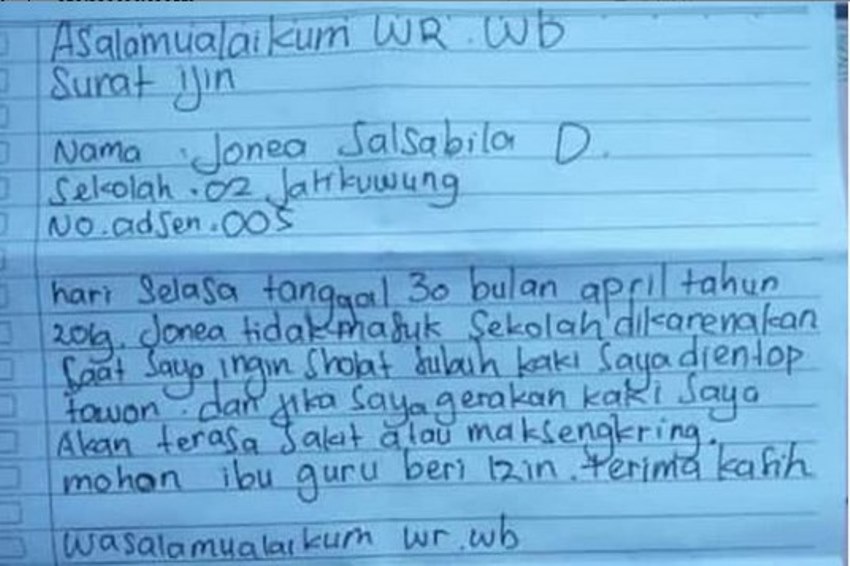 Asalamualaikum WR. Wb
Surat ijin
Nama : Jonea Salsabila D.
Sekolah : 02 Jatikuwung
No. adsen : 005
hari Selasa tanggal 30 bulan april tahun
2019. Jonea tidak masuk Sekolah dikarenakan
Saat Saya ingin Sholat Subuh kaki Saya dientop
tawon. dan jika Saya gerakan kaki Saya
Akan terasa Sakit atau maksengkring.
mohon ibu guru beri izin. terima kasih
Wasalamualaikum wr. wb